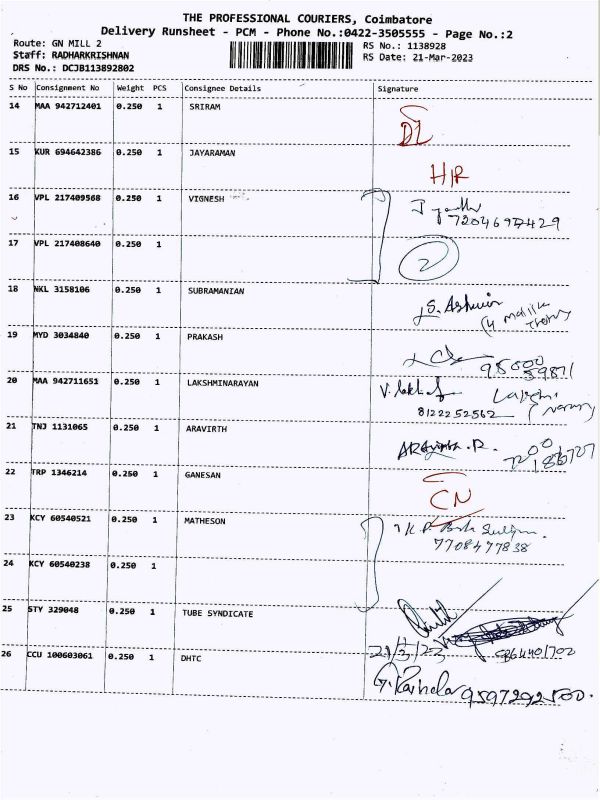 THE PROFESSIONAL COURIERS, Coimbatore
Delivery Runsheet - PCM - Phone No.:0422-3505555 - Page No.:2
Route: GN MILL 2
RS No.: 1138928
Staff: RADHARKRISHNAN
RS Date: 21-Mar-2023
DRS No.: DCJB113892802
S No Consignment No Weight PCS Consignee Details Signature
14 MAA 942712401 0.250 1 SRIRAM DL
15 KUR 694642386 0.250 1 JAYARAMAN H/R
16 VPL 217409568 0.250 1 VIGNESH
17 VPL 217408640 0.250 1 2
18 NKL 3158106 0.250 1 SUBRAMANIAN S. Ashwin
19 MYD 3034840 0.250 1 PRAKASH
20 MAA 942711651 0.250 1 LAKSHMINARAYAN
8122252562
21 TNJ 1131065 0.250 1 ARAVIRTH
22 TRP 1346214 0.250 1 GANESAN CN
23 KCY 60540521 0.250 1 MATHESON
7708477838
24 KCY 60540238 0.250 1
25 STY 329048 0.250 1 TUBE SYNDICATE
21/3/23
26 CCU 100603061 0.250 1 DHTC